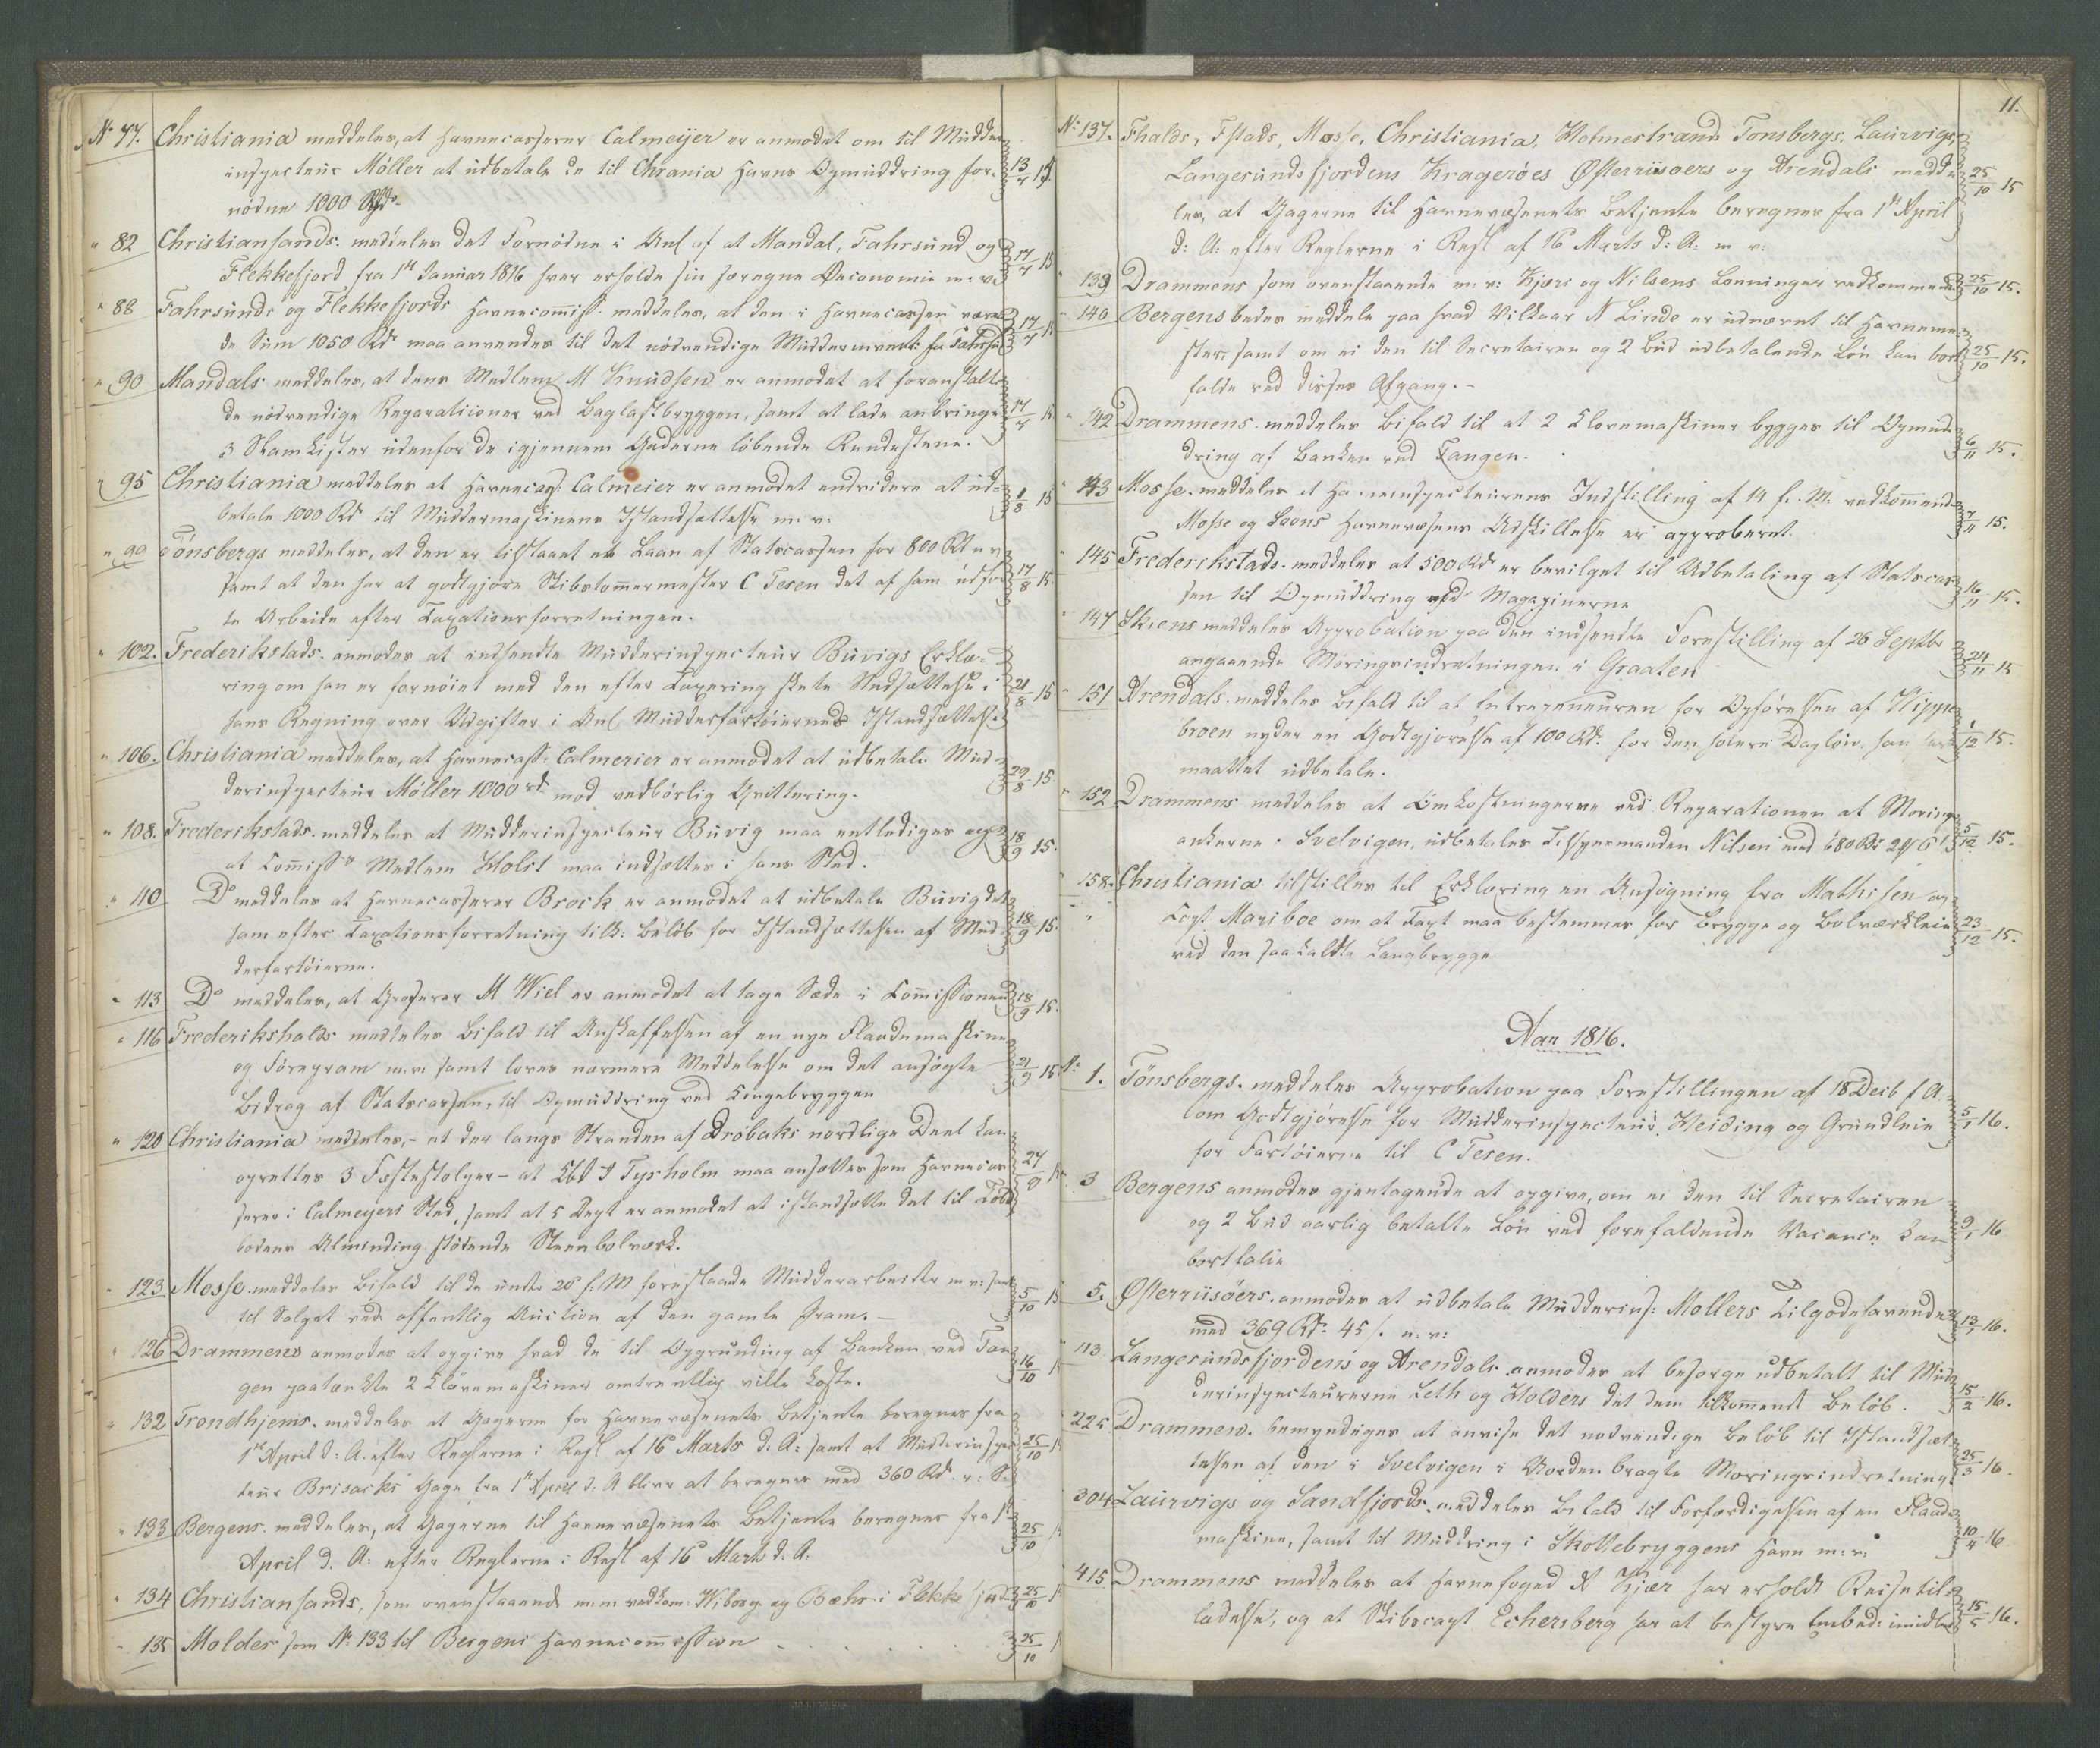 No 77. Christiania meddeles, at Havnecasserer Calmeijer er anmodet om til Mudder
inspecteur Möller at udbetale de til Chrania Havns Opmuddring for- 13/7 15.
nödne 1000 Rbdr
" 82 Christiansands. meddeles det Fornödne i Anl af at Mandal, Fahrsund og
Flekkefjord fra 1ste Januar 1816 hver erholde sin særegne Oeconomie m. v. 17/7 15
" 88 Fahrsunds og Flekkefjords Havnecommiss. meddeles, at den i Havnecassen være
de Sum 1050 Rdr maa anvendes til det nödvendige 17/7 15
" 90 Mandals meddeles, at dens Medlem M Knudsen er anmodet at foranstalte
de nödvendige Reparationer ved Baglastbryggen, samt at lade anbringe 17/7 15
3 Slamkister udenfor de igjennem Gaderne löbende Rendestene.
" 95 Christiania meddeles at Havnecass. Calmeier er anmodet endvidere at ud-
betale 1000 Rdr til Muddermaskinens Istandsættelse m. v. 1/8 15
" 99 Tönsbergs meddeles, at den er tilstaaet et Laan af Statscassen for 800 Rd n. v.
samt at den har at godtgjöre Skibstömmermester C Tesen det af ham udför 17/8 15.
te Arbeide efter Taxationsforretningen.
" 102. Frederikstads. anmodes at indsende Mudderinspecteur Buvigs Erklæ-
ring om han er fornöiet med den efter Taxering skete Nedsættelse i 21/8 15
hans Regning over Udgifter i Anl Mudderfartöiernes Istandsættelse
" 106. Christiania meddeles, at Havnecass: Calmeier er anmodet at udbetale Mud-
derinspecteur Möller 1000 rd mod vedbörlig Qvittering. 29/8 15.
" 108. Frederikstads. meddeles at Mudderinspecteur Buvig maa entlediges og
at Commiss. Medlem Holst maa indsættes i hans Sted. 18/9 15.
" 110 Do meddeles at Havnecasserer Brock er anmodet at udbetale Buvig det
ham efter Taxationsforretning tilk: Belöb for Istandsættelsen af Mud- 18/9 15.
derfartöierne.
" 113 Do meddeles, at Grosserer M Wiel er anmodet at tage Sæde i Commissionen 18/9 15.
" 116 Frederikshalds meddeles Bifald til Anskaffelsen af en nye Flaademaskine
og Förepram m. v. samt loves nærmere Meddelelse om det ansögte 21/9 15
Bidrag af Statscassen, til Opmuddring ved Tingebryggen
" 120 Christiania meddeles,- at der langs Stranden af Dröbaks nordlige Deel kan
oprettes 3 Fæstestolper - at T Tyrholm maa ansættes som Havnecas 27/9 15
serer i Calmeyers Sted, samt at 5 Dept er anmodet at istandsætte det til Told
bodens Almending stödende Steenbolværk.
" 123 Mosse. meddeles Bifald til de under 20 f. M foreslaaede Mudderarbeider m. v. samt
til Salget ved offentlig Auction af den gamle Pram. - 5/10 15
" 126 Drammens anmodes at opgive hvad de til Opgrunding af Banken ved Tan
gen paatænkte 2 Klövemaskiner omtrentlig ville koste. 16/10 15
" 132 Trondhjems. meddeles at Gagerne for Havnevæsenets Betjente beregnes fra
1ste April d: A. efter Reglerne i Resl af 16 Marts d. A: samt at Mudderinspec 25/10 15
teur Brisacks Gage fra 1ste April d. A bliver at beregnes med 360 Rd. r: S.
" 133 Bergens. meddeles, at Gagerne til Havnevæsenets Betjente beregnes fra 1ste
April d. A: efter Reglerne i Resl af 16 Marts d. A. 25/10 15
" 134 Christiansands, som ovenstaaende m. m. vedkom: Wiborg og Bæhr i Flekkefjord 25/10 15
" 135 Moldes som No 133 til Bergens Havnecommission . . . . . . . 25/10
11.
No 137. Fhalds, Fstads, Mosse, Christiania, Holmestrands Tonsbergs, Laurvigs,
Langesundsfjordens Krageröes Østerriisoers og Arendals medde 25/10 15
les, at Gagerne til Havnevæsenets Betjente beregnes fra 1ste April
d: A: efter Reglerne i Resl af 16 Marts d: A: m v:
" 139 Drammens som ovenstaaende m. v: Kjærs og Nilsens Lonninger vedkommende 25/10 15.
" 140 Bergens bedes meddele paa hvad Vilkaar N Linde er udnævnt til Havneme-
ster, samt om ei den til Secretairen og 2 Bud udbetalende Lön kan bort 25/10 15.
falde ved disses Afgang. -
" 142 Drammens. meddeles Bifald til at 2 Klovemaskiner bygges til Opmud-
dring af Banken ved Tangen. 6/11 15.
" 143 Mosse. meddeles at Havneinspecteurens Indstilling af 14 f. M. vedkommende
Mosse og Soons Havnevæsens Adskillelse er approberet. 7/11 15.
" 145 Frederikstads. meddeles at 500 Rdr er bevilget til Udbetaling af Statscas
sen til Opmuddring ved Magazinerne 16/11 15.
" 147 Skiens meddeles Approbation paa den indsendte Forestilling af 26 Septbr
angaaende Moringsindretningen i Graaten 24/11 15
" 151 Arendals. meddeles Bifald til at Entrepreneuren for Opförelsen af Vippe
broen nyder en Godtgjörelse af 100 Rd. for den höiere Daglön han har 1/12 15.
maattet udbetale.
" 152 Drammens meddeles at Omkostningerne ved Reparationen at Morings
ankerne i Svelvigen, udbetales Tilsynsmanden Nilsen med 680 Rd 2 6 5/12 15.
" 158. Christiania tilstilles til Erklæring en Ansögning fra Mathisen og
" Cogt Mariboe om at Taxt maa bestemmes for Brygge og Bolværksleie 23/12 15.
ved den saakaldte Langbrygge
Aar 1816.
No 1. Tönsbergs. meddeles Approbation paa Forestillingen af 18 Decb f A.
om Godtgjörelse for Mudderinspecteur Heiding og Grundleie 5/1 16.
for Fartöierne til C Tesen.
" 3 Bergens anmodes gjentagende at opgive, om ei den til Secretairen
og 2 Bud aarlig betalte Lön ved forefaldende Vacance kan 9/1 16
bortfalde
" 5. Østerriisöers. anmodes at udbetale Mudderins: Mollers Tilgodehavende
med 369 Rd: 45 s. m. v: 13/1 16.
" 113 Langesundsfjordens og Arendals anmodes at besorge udbetalt til Mud
derinspecteurerne Leth og Holders det dem tilkommende Belöb. 15/2 16.
" 225 Drammens. bemyndiges at anvise det nodvendige Belöb til Istandsæt
telsen af den i Svelvigen i Uorden bragte Moringsindretning. 25/3 16.
304 Laurvigs og Sandfjords. meddeles Bifald til Forfærdigelsen af en Flaade
maskine, samt til Muddring i Skottebryggens Havn m. v. 10/4 16
415 Drammens meddeles at Havnefoged N Kjær har erholdt Reisetil-
ladelse, og at Skibscapt Echersberg har at bestyre Embed: imidler 15/5 16.